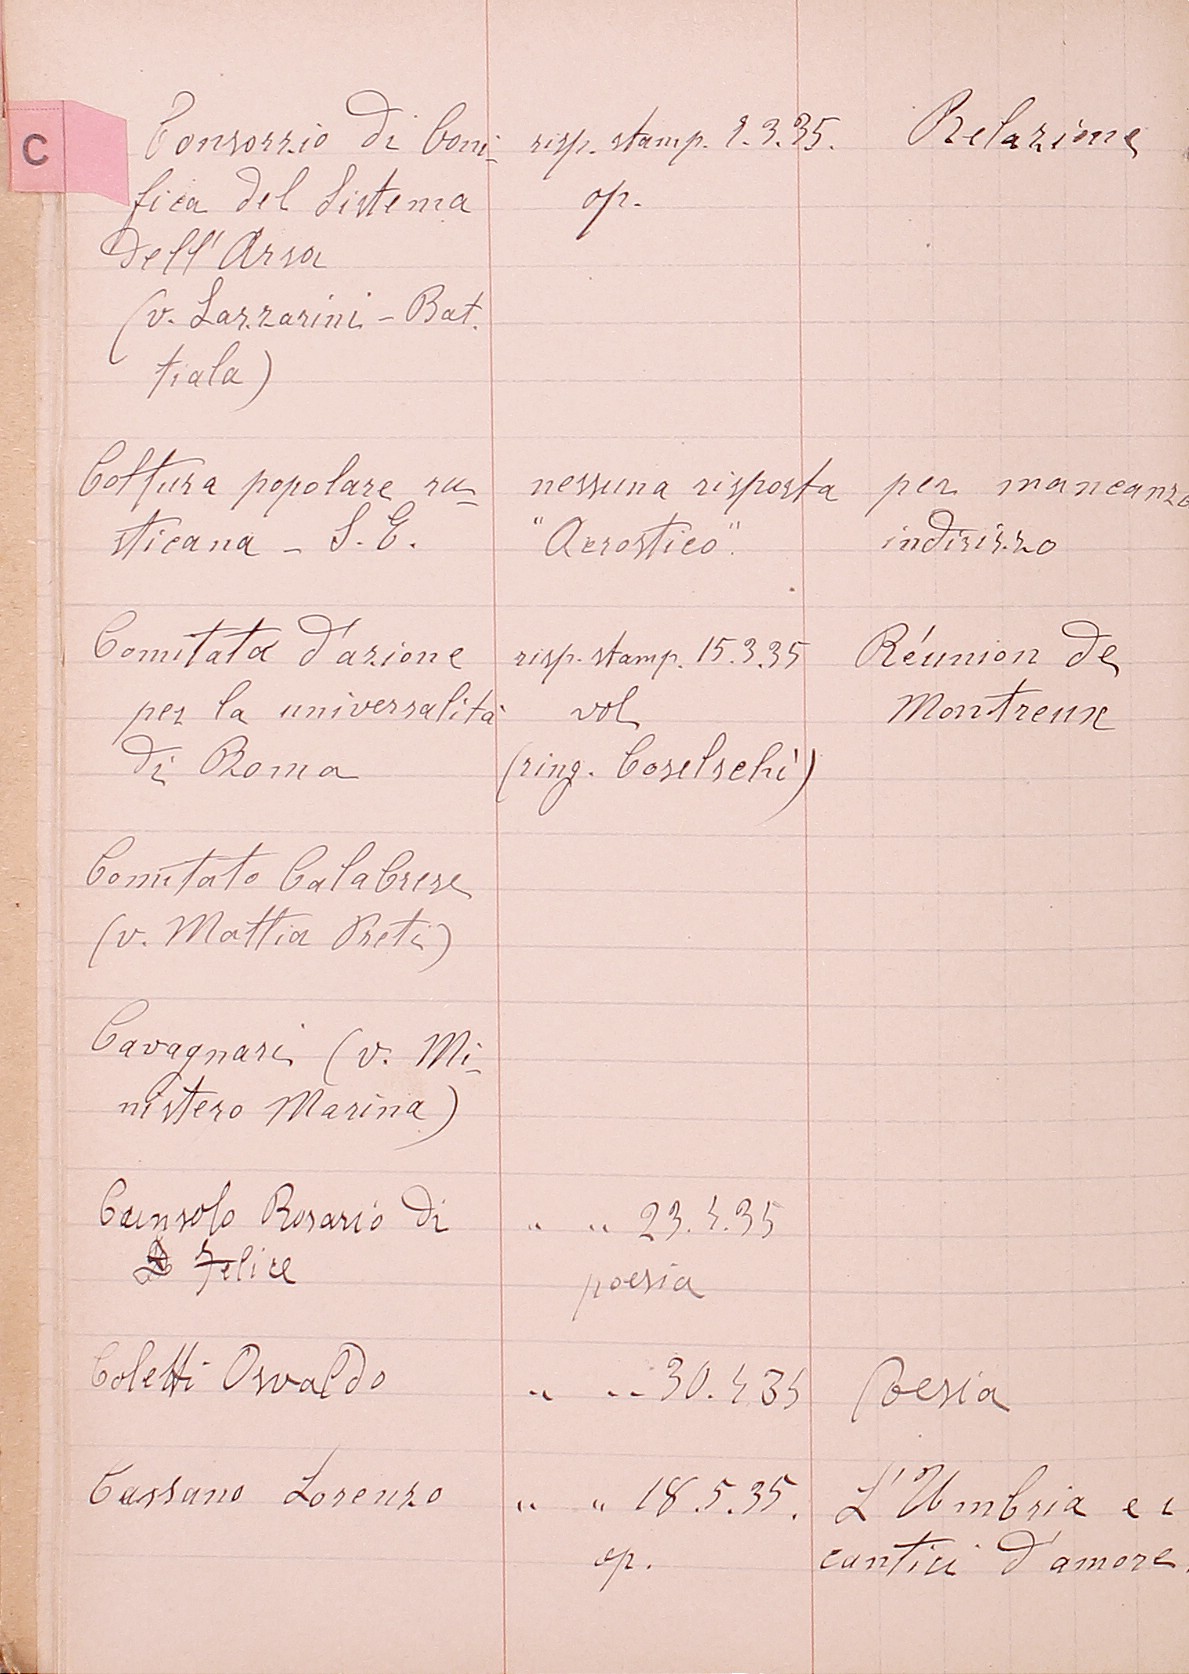 C
Consorzio di Boni- risp. stamp. 9.3.35. Relazione
fica del Sistema op.
dell'Arsa
(v. Lazzarini - Bat.
tiala)
Coltura popolare ru- nessuna risposta per mancanza
sticana - S. E. "Acrostico". indirizzo
Comitato d'azione risp. stamp. 15.3.35 Réunion de
per la universalità vol Montreux
di Roma (ring. Coselschi)
Comitato Calabrese
(v. Mattia Preti)
Cavagnari (v. Mi-
nistero Marina)
Cunsolo Rosario di " " 23.4.35
Felice poesia
Coletti Osvaldo " " 30.4.35 Poesia
Cassano Lorenzo " " 18.5.35. L'Umbria e i
op. cantici d'amore.